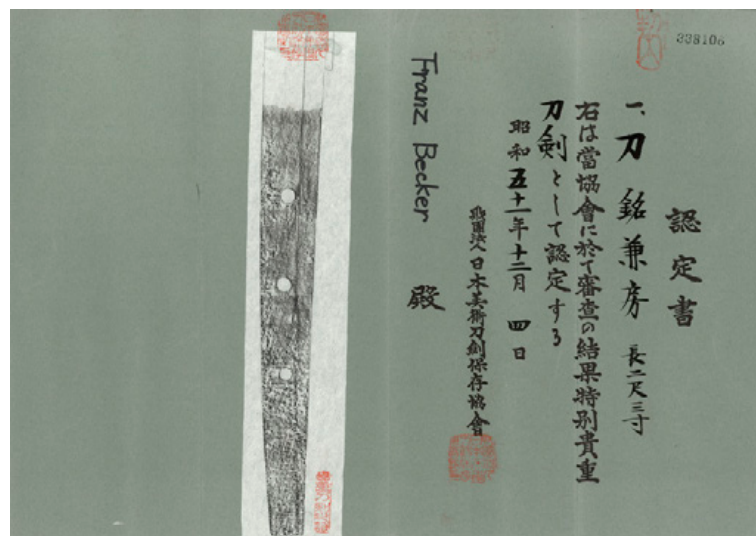 338106
認定書
一、刀 銘兼房 長二尺三寸
右は當協會に於て審査の結果特別貴重
刀剣として認定する
昭和五十一年十二月 四日
財團法人日本美術刀剣保存協會
Franz Becker 殿